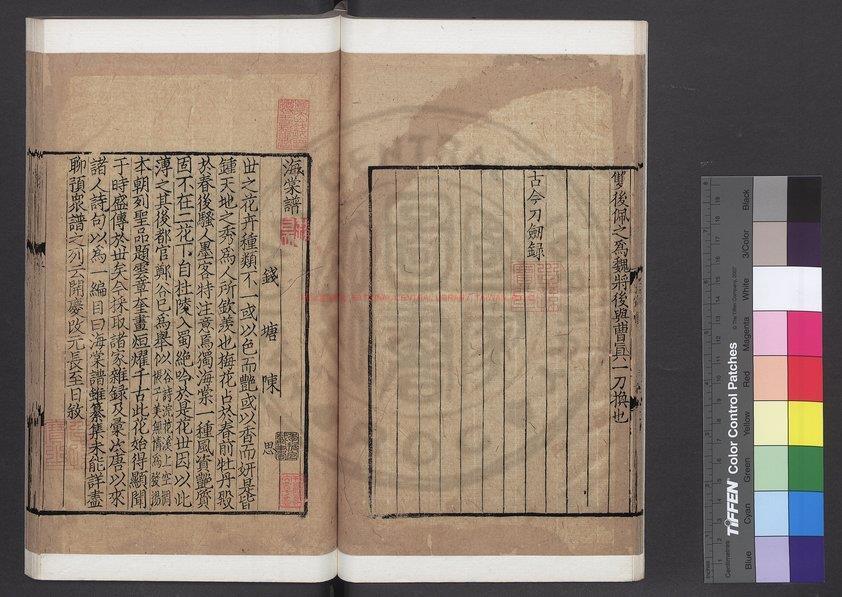 雙後佩之為魏將後與曹真一刀換也
古今刀劒録
海棠譜
錢塘陳思
世之花卉種類不一或以色而艷或以香而妍是皆
鍾天地之秀為人所欽羨也梅花占於春前牡丹殿
於春後騷人墨客特注意焉獨海棠一種風姿艷質
固不在二花下自杜陵入蜀絶吟於是花世因以此
薄之其後都官鄭谷已為舉似
本朝列聖品題雲章奎畫烜耀千古此花始得顯聞
于時盛傳於世矣今採取諸家雜録及彙次唐以來
諸人詩句以為一編目曰海棠譜雖纂集未能詳盡
聊預衆譜之列云開慶改元長至日敘
NATIONAL CENTRAL LIBRARY, TAIWAN
TIFFEN Color Control Patches
© The Tiffen Company, 2007
Centimetres
Blue
Cyan
Green
Yellow
Red
Magenta
White
3/Color
Black